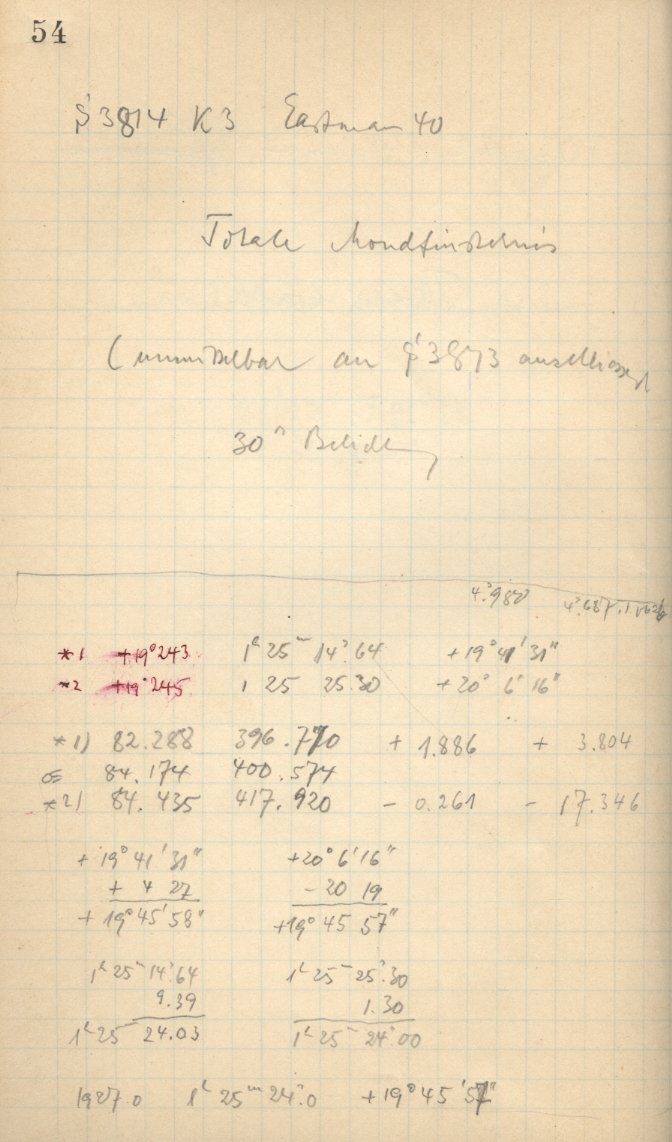 54
3814 K3 Eastman 40
Totale Mondfinsternis
(unmittelbar an 3873 anschliessend
30ᵐ Belichtg
4ˢ.980
*1 +19°243 1ʰ 25ᵐ 14ˢ.64 +19° 41' 31"
*2 +19°245 1 25 25.30 +20° 6' 16"
*1) 82.288 396.770 + 1.886 + 3.804
84.174 400.574
*2) 84.435 417.920 - 0.261 - 17.346
+ 19° 41' 31" +20° 6' 16"
+ 4 27 - 20 19
+ 19° 45' 58" +19° 45 57"
1ʰ 25ᵐ 14ˢ.64 1ʰ 25ᵐ 25ˢ.30
9.39 1.30
1ʰ 25ᵐ 24.03 1ʰ 25ᵐ 24ˢ.00
1927.0 1ʰ 25ᵐ 24ˢ.0 +19° 45' 57"